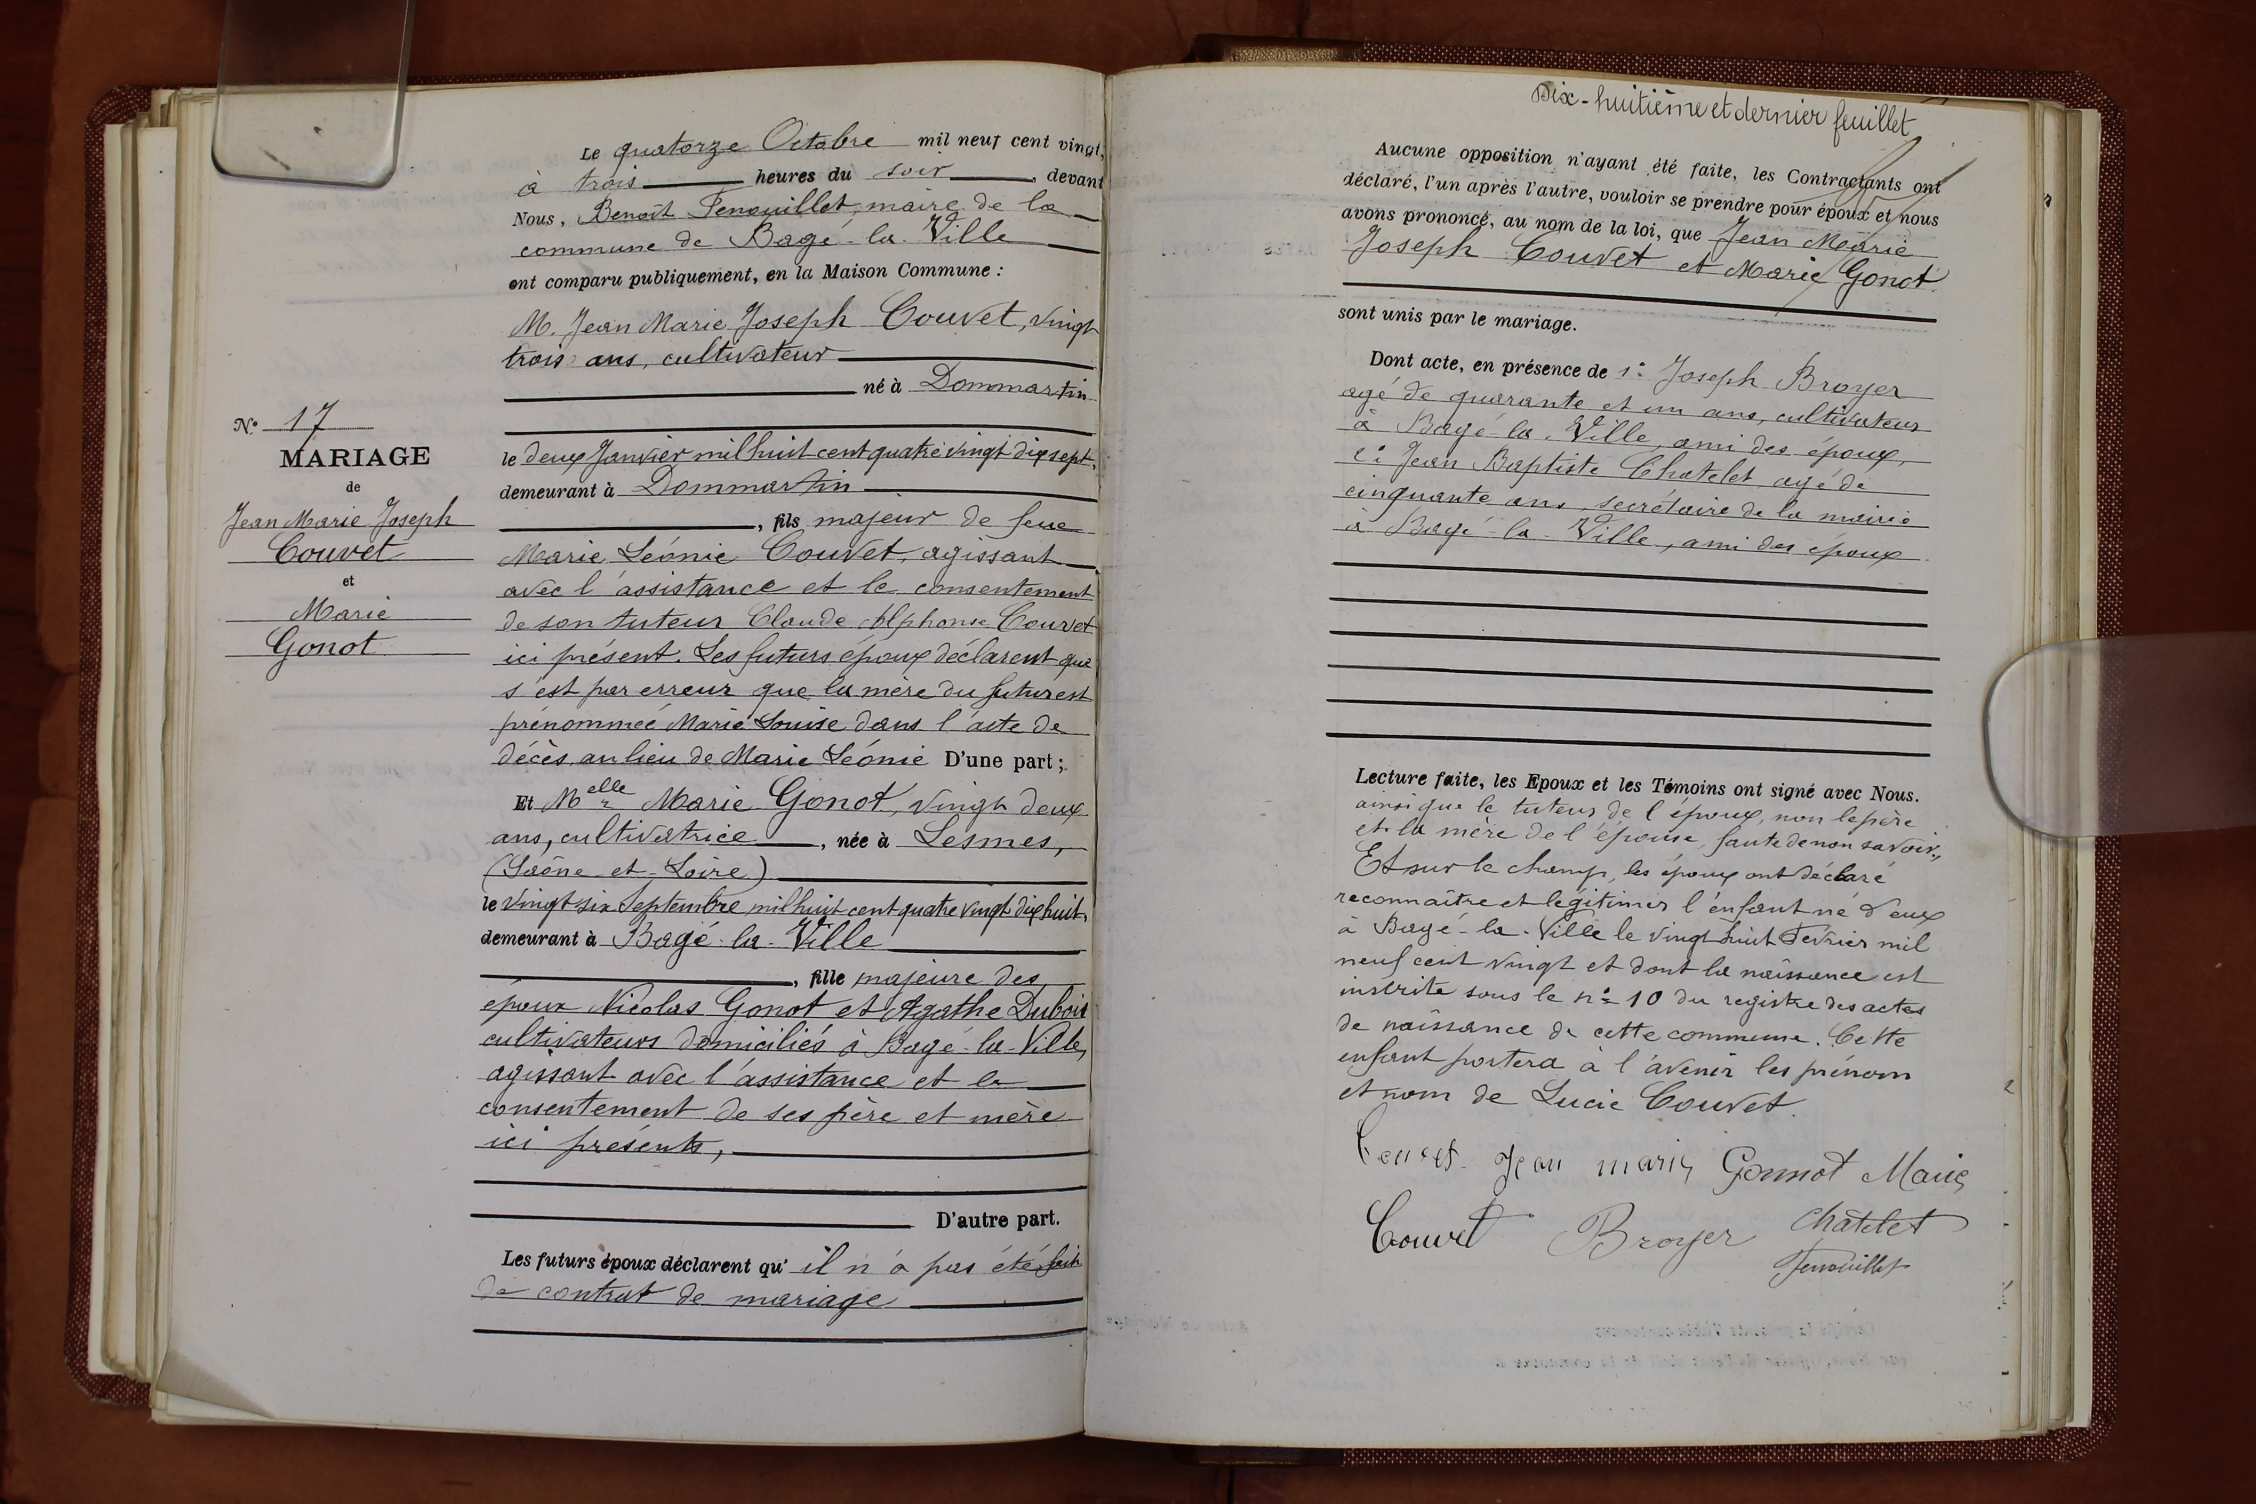 Le quatorze Octobre mil neuf cent vingt,
à trois heures du soir, devant
Nous, Benoît Fenouillet, maire de la
commune de Bagé-la-Ville
ont comparu publiquement, en la Maison Commune :
M. Jean Marie Joseph Couvet, vingt
trois ans, cultivateur
né à Dommartin
N° 17
MARIAGE
de
Jean Marie Joseph
Couvet
et
Marie
Gonot
le deux Janvier mil huit cent quatre vingt dix sept,
demeurant à Dommartin
, fils majeur de feue
Marie Léonie Couvet, agissant
avec l'assistance et le consentement
de son tuteur Claude Alphonse Couvet
ici présent. Les futurs époux déclarent que
s'est par erreur que la mère du futur est
prénommée Marie Louise dans l'acte de
décès au lieu de Marie Léonie D'une part ;
Et Melle Marie Gonot, vingt deux
ans, cultivatrice, née à Lesmes,
(Saône-et-Loire)
le vingt six Septembre mil huit cent quatre vingt dix huit,
demeurant à Bagé-la-Ville
, fille majeure des
époux Nicolas Gonot et Agathe Dubois
cultivateurs domiciliés à Bagé-la-Ville,
agissant avec l'assistance et le
consentement de ses père et mère
ici présents,
D'autre part.
Les futurs époux déclarent qu' il n'a pas été fait
de contrat de mariage
Dix-huitième et dernier feuillet
Aucune opposition n'ayant été faite, les Contractants ont
déclaré, l'un après l'autre, vouloir se prendre pour époux et nous
avons prononcé, au nom de la loi, que Jean Marie
Joseph Couvet et Marie Gonot.
sont unis par le mariage.
Dont acte, en présence de 1° Joseph Broyer
agé de quarante et un ans, cultivateur
à Bagé-la-Ville, ami des époux,
2° Jean Baptiste Chatelet agé de
cinquante ans, secrétaire de la mairie
à Bagé-la-Ville, ami des époux
Lecture faite, les Epoux et les Témoins ont signé avec Nous.
ainsi que le tuteur de l'époux, non le père
et la mère de l'épouse, faute de non savoir.,
Et sur le champ, les époux ont déclaré
reconnaître et légitimer l'enfant né d'eux
à Bagé-la-Ville le vingt huit Février mil
neuf cent vingt et dont la naissance est
inscrite sous le n° 10 du registre des actes
de naissance de cette commune. Cette
enfant portera à l'avenir les prénom
et nom de Lucie Couvet.
Couvet Jean marie Gonnot Marie
Couvet Broyer Châtelet
Fenouillet